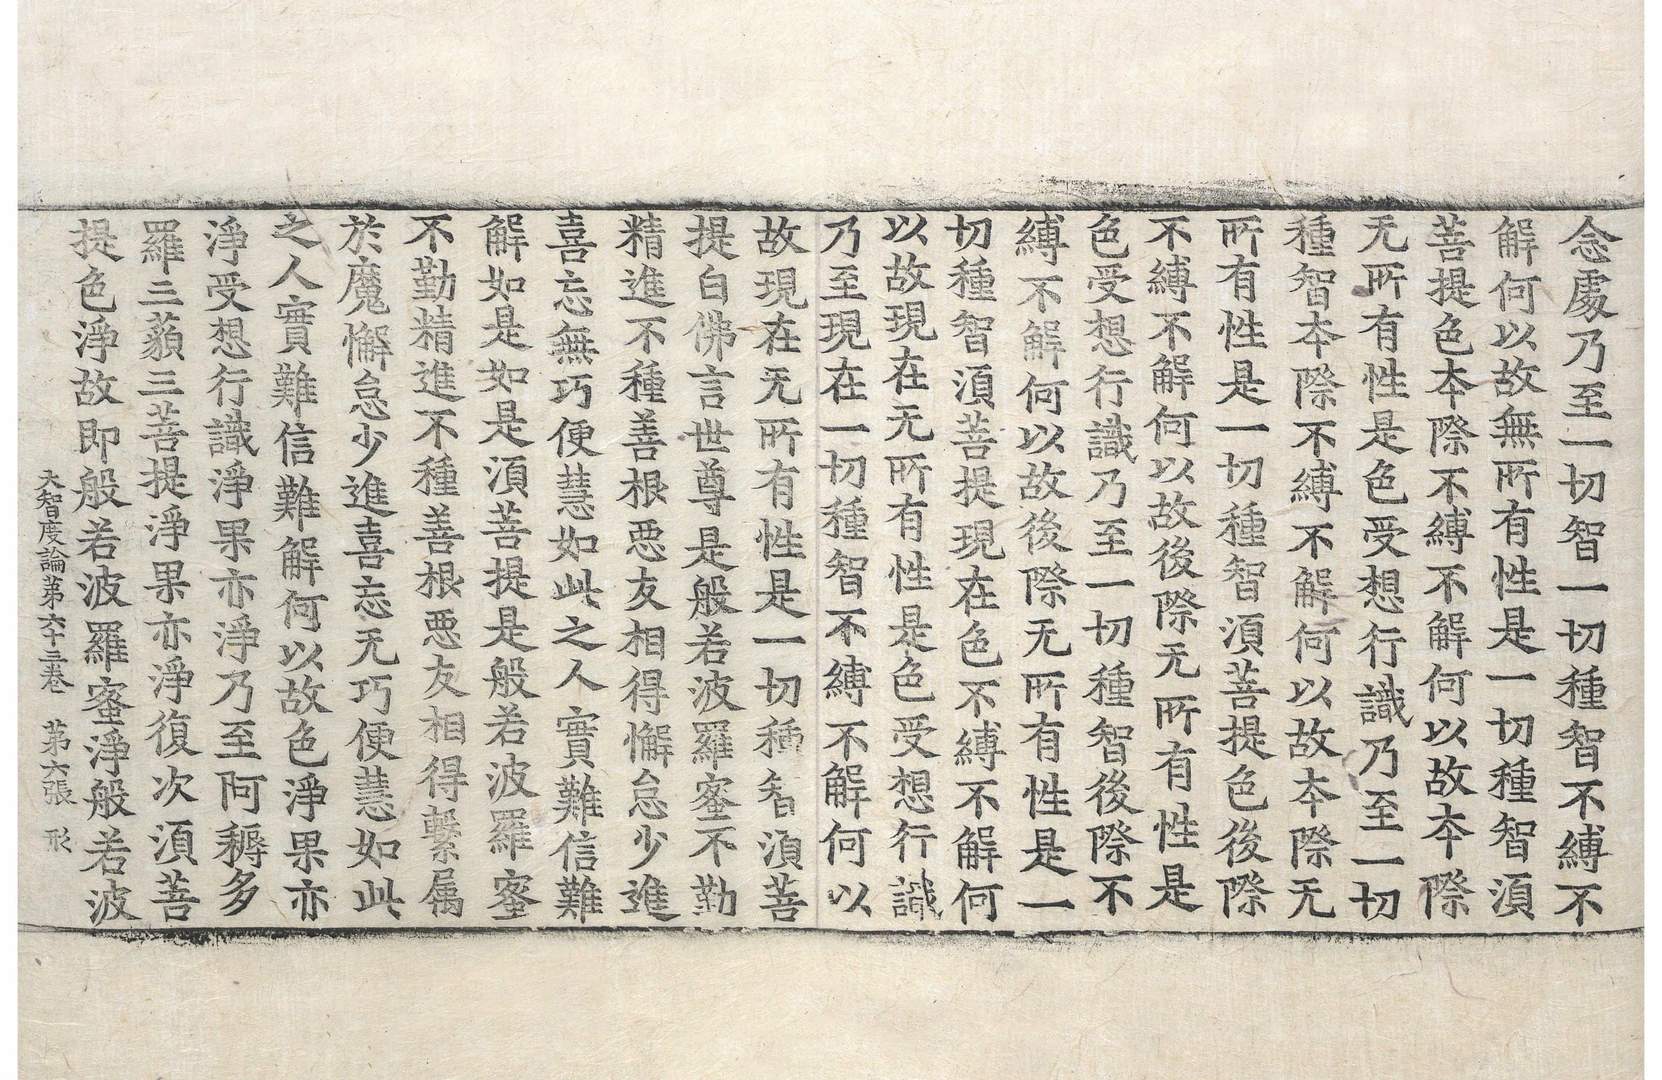 念處乃至一切智一切種智不縛不
解何以故無所有性是一切種智湏
菩提色夲際不縛不解何以故夲際
无所有性是色受想行識乃至一切
種智夲際不縛不解何以故夲際无
所有性是一切種智湏菩提色後際
不縛不解何以故後際无所有性是
色受想行識乃至一切種智後際不
縛不解何以故後際无所有性是一
切種智湏菩提現在色不縛不解何
以故現在无所有性是色受想行識
乃至現在一切種智不縛不解何以
故現在无所有性是一切種智湏菩
提白佛言世尊是般若波羅蜜不勤
精進不種善根惡友相得懈怠少進
喜忘無巧便慧如此之人實難信難
解如是如是湏菩提是般若波羅蜜
不勤精進不種善根惡友相得繫属
於魔懈怠少進喜忘无巧便慧如此
之人實難信難解何以故色淨果亦
淨受想行識淨果亦淨乃至阿耨多
羅三藐三菩提淨果亦淨復次湏菩
提色淨故即般若波羅蜜淨般若波
大智度論第六十三卷 第六張 形